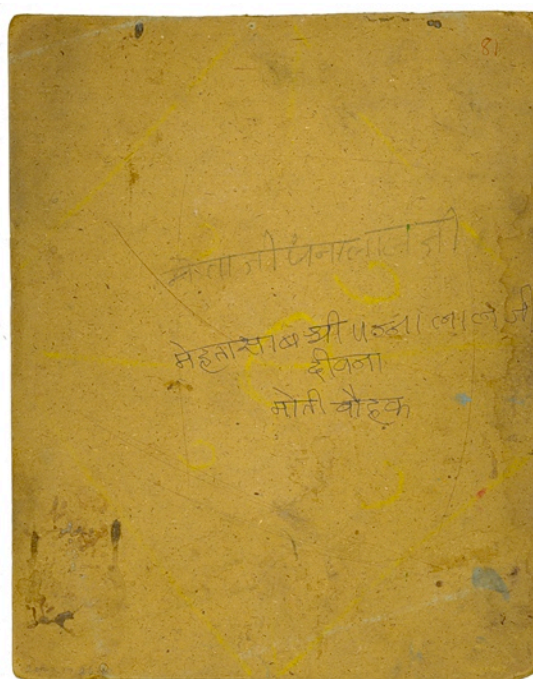 81
मेताजी पनालालजी
मेहता साब श्री पन्नालालजी
दीवना
मोती चौहक